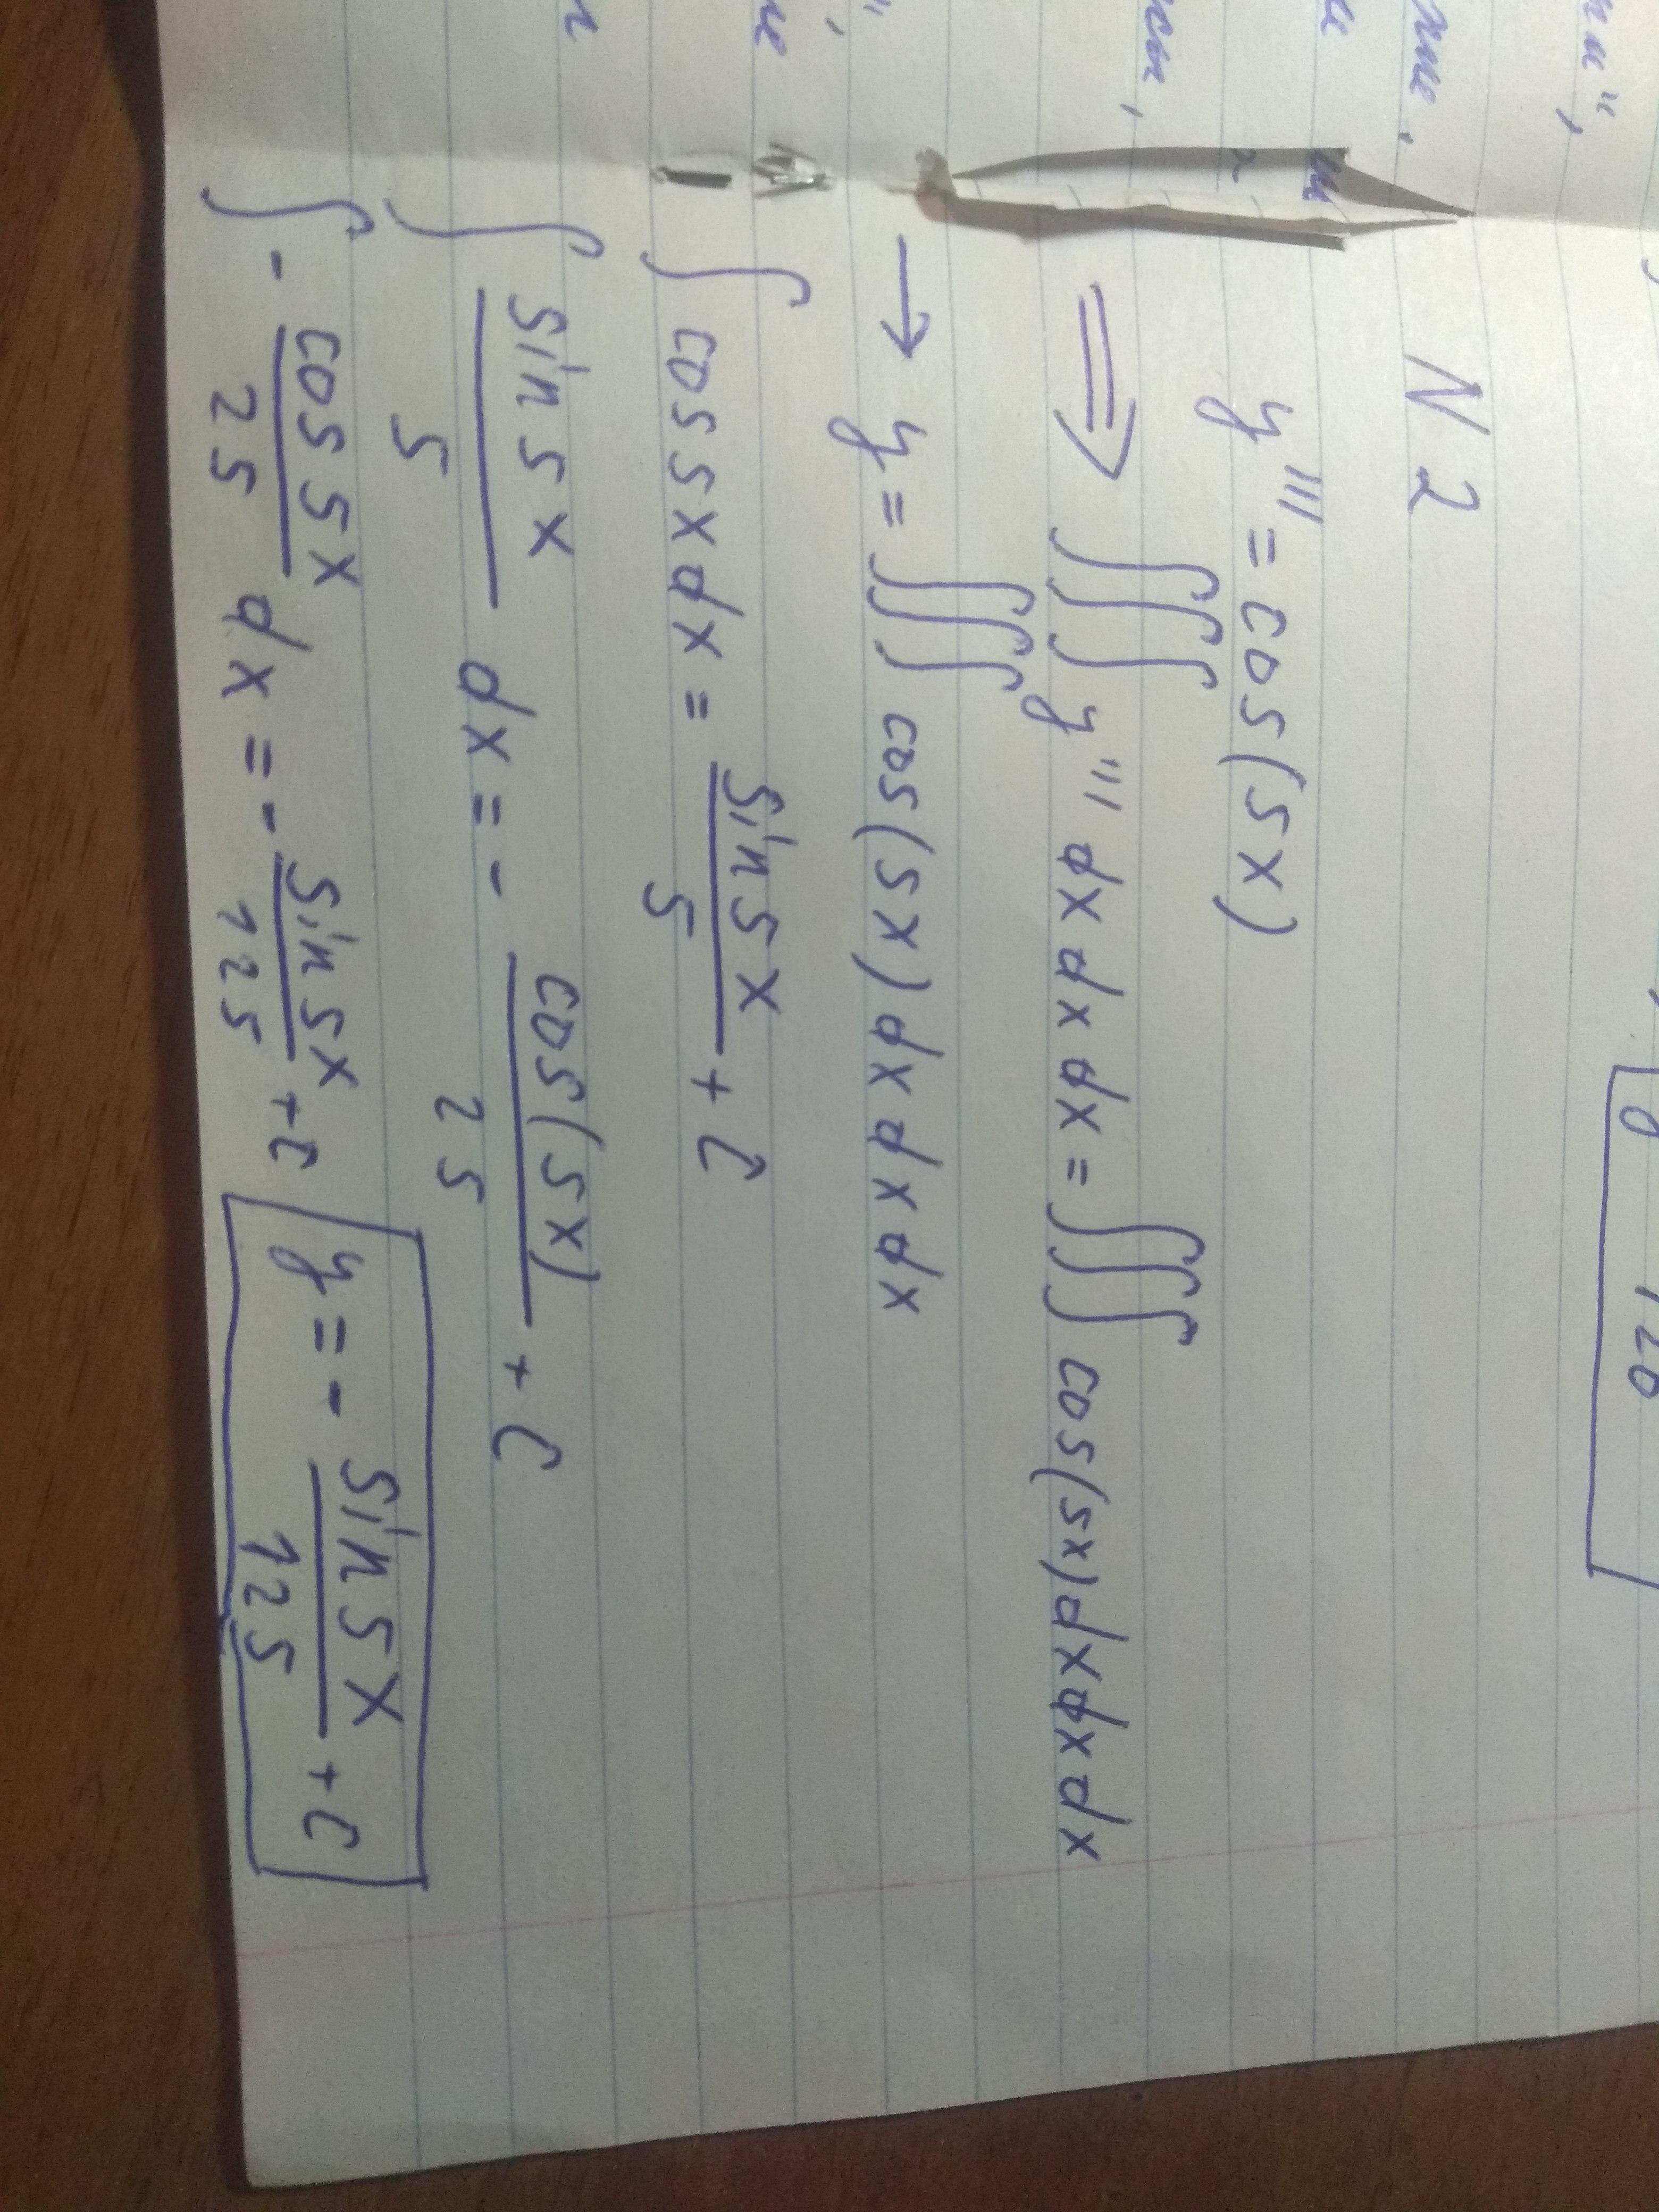 N 2
y''' = cos(5x)
⟹ ∫∫∫ y''' dx dx dx = ∫∫∫ cos(5x) dx dx dx
→ y = ∫∫∫ cos(5x) dx dx dx
∫ cos 5x dx = sin 5x / 5 + C
∫ sin 5x / 5 dx = - cos(5x) / 25 + C
∫ - cos 5x / 25 dx = - sin 5x / 125 + C
y = - sin 5x / 125 + C